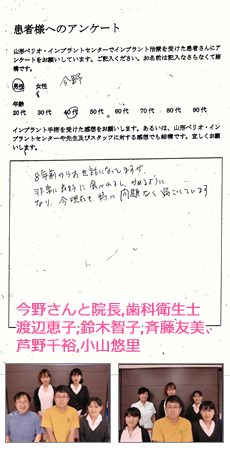 患者様へのアンケート
山形ペリオ・インプラントセンターでインプラント治療を受けた患者さんにア
ンケートをお願いしています。ご記入ください。お名前は記入なさらなくて結
構です。
男性 女性 今野
年齢
20代 30代 40代 50代 60代 70代 80代 90代
インプラント手術を受けた感想をお願いします。あるいは、山形ペリオ・イン
プラントセンターや先生及びスタッフに対する感想でも結構です。宜しくお願
いします。
8年前からお世話になってますが、
非常に良好に食べれるし、かめるように
なり、今現在も特に問題なく過ごしています
今野さんと院長,歯科衛生士
渡辺恵子;鈴木智子;斉藤友美、
芦野千裕,小山悠里